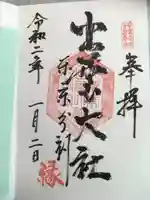 奉拝
出雲大社
東京分祠
令和二年
一月二日
縁